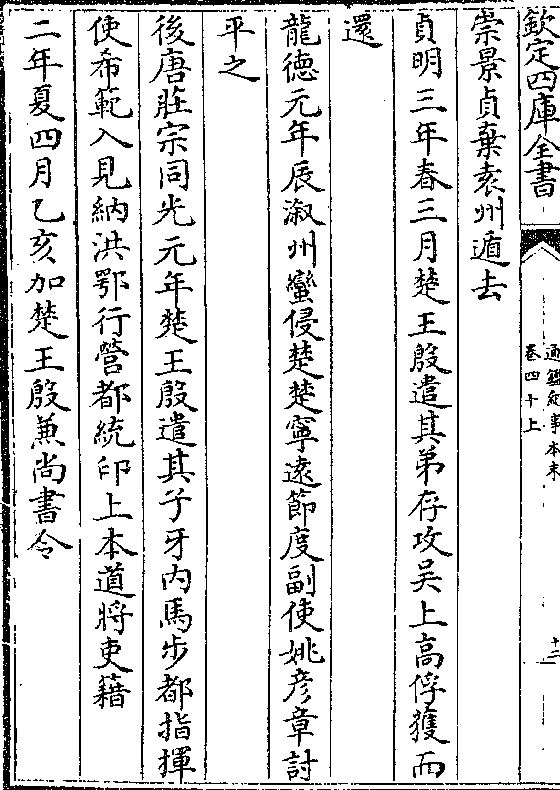 欽定四庫全書
通鑑紀事本末
卷四十上
十二
崇景貞棄袁州遁去
貞明三年春三月楚王殷遣其弟存攻吳上高俘獲而
還
龍德元年辰溆州蠻侵楚楚寧遠節度副使姚彦章討
平之
後唐莊宗同光元年楚王殷遣其子牙内馬步都指揮
使希範入見納洪鄂行營都統印上本道將吏籍
二年夏四月乙亥加楚王殷兼尚書令